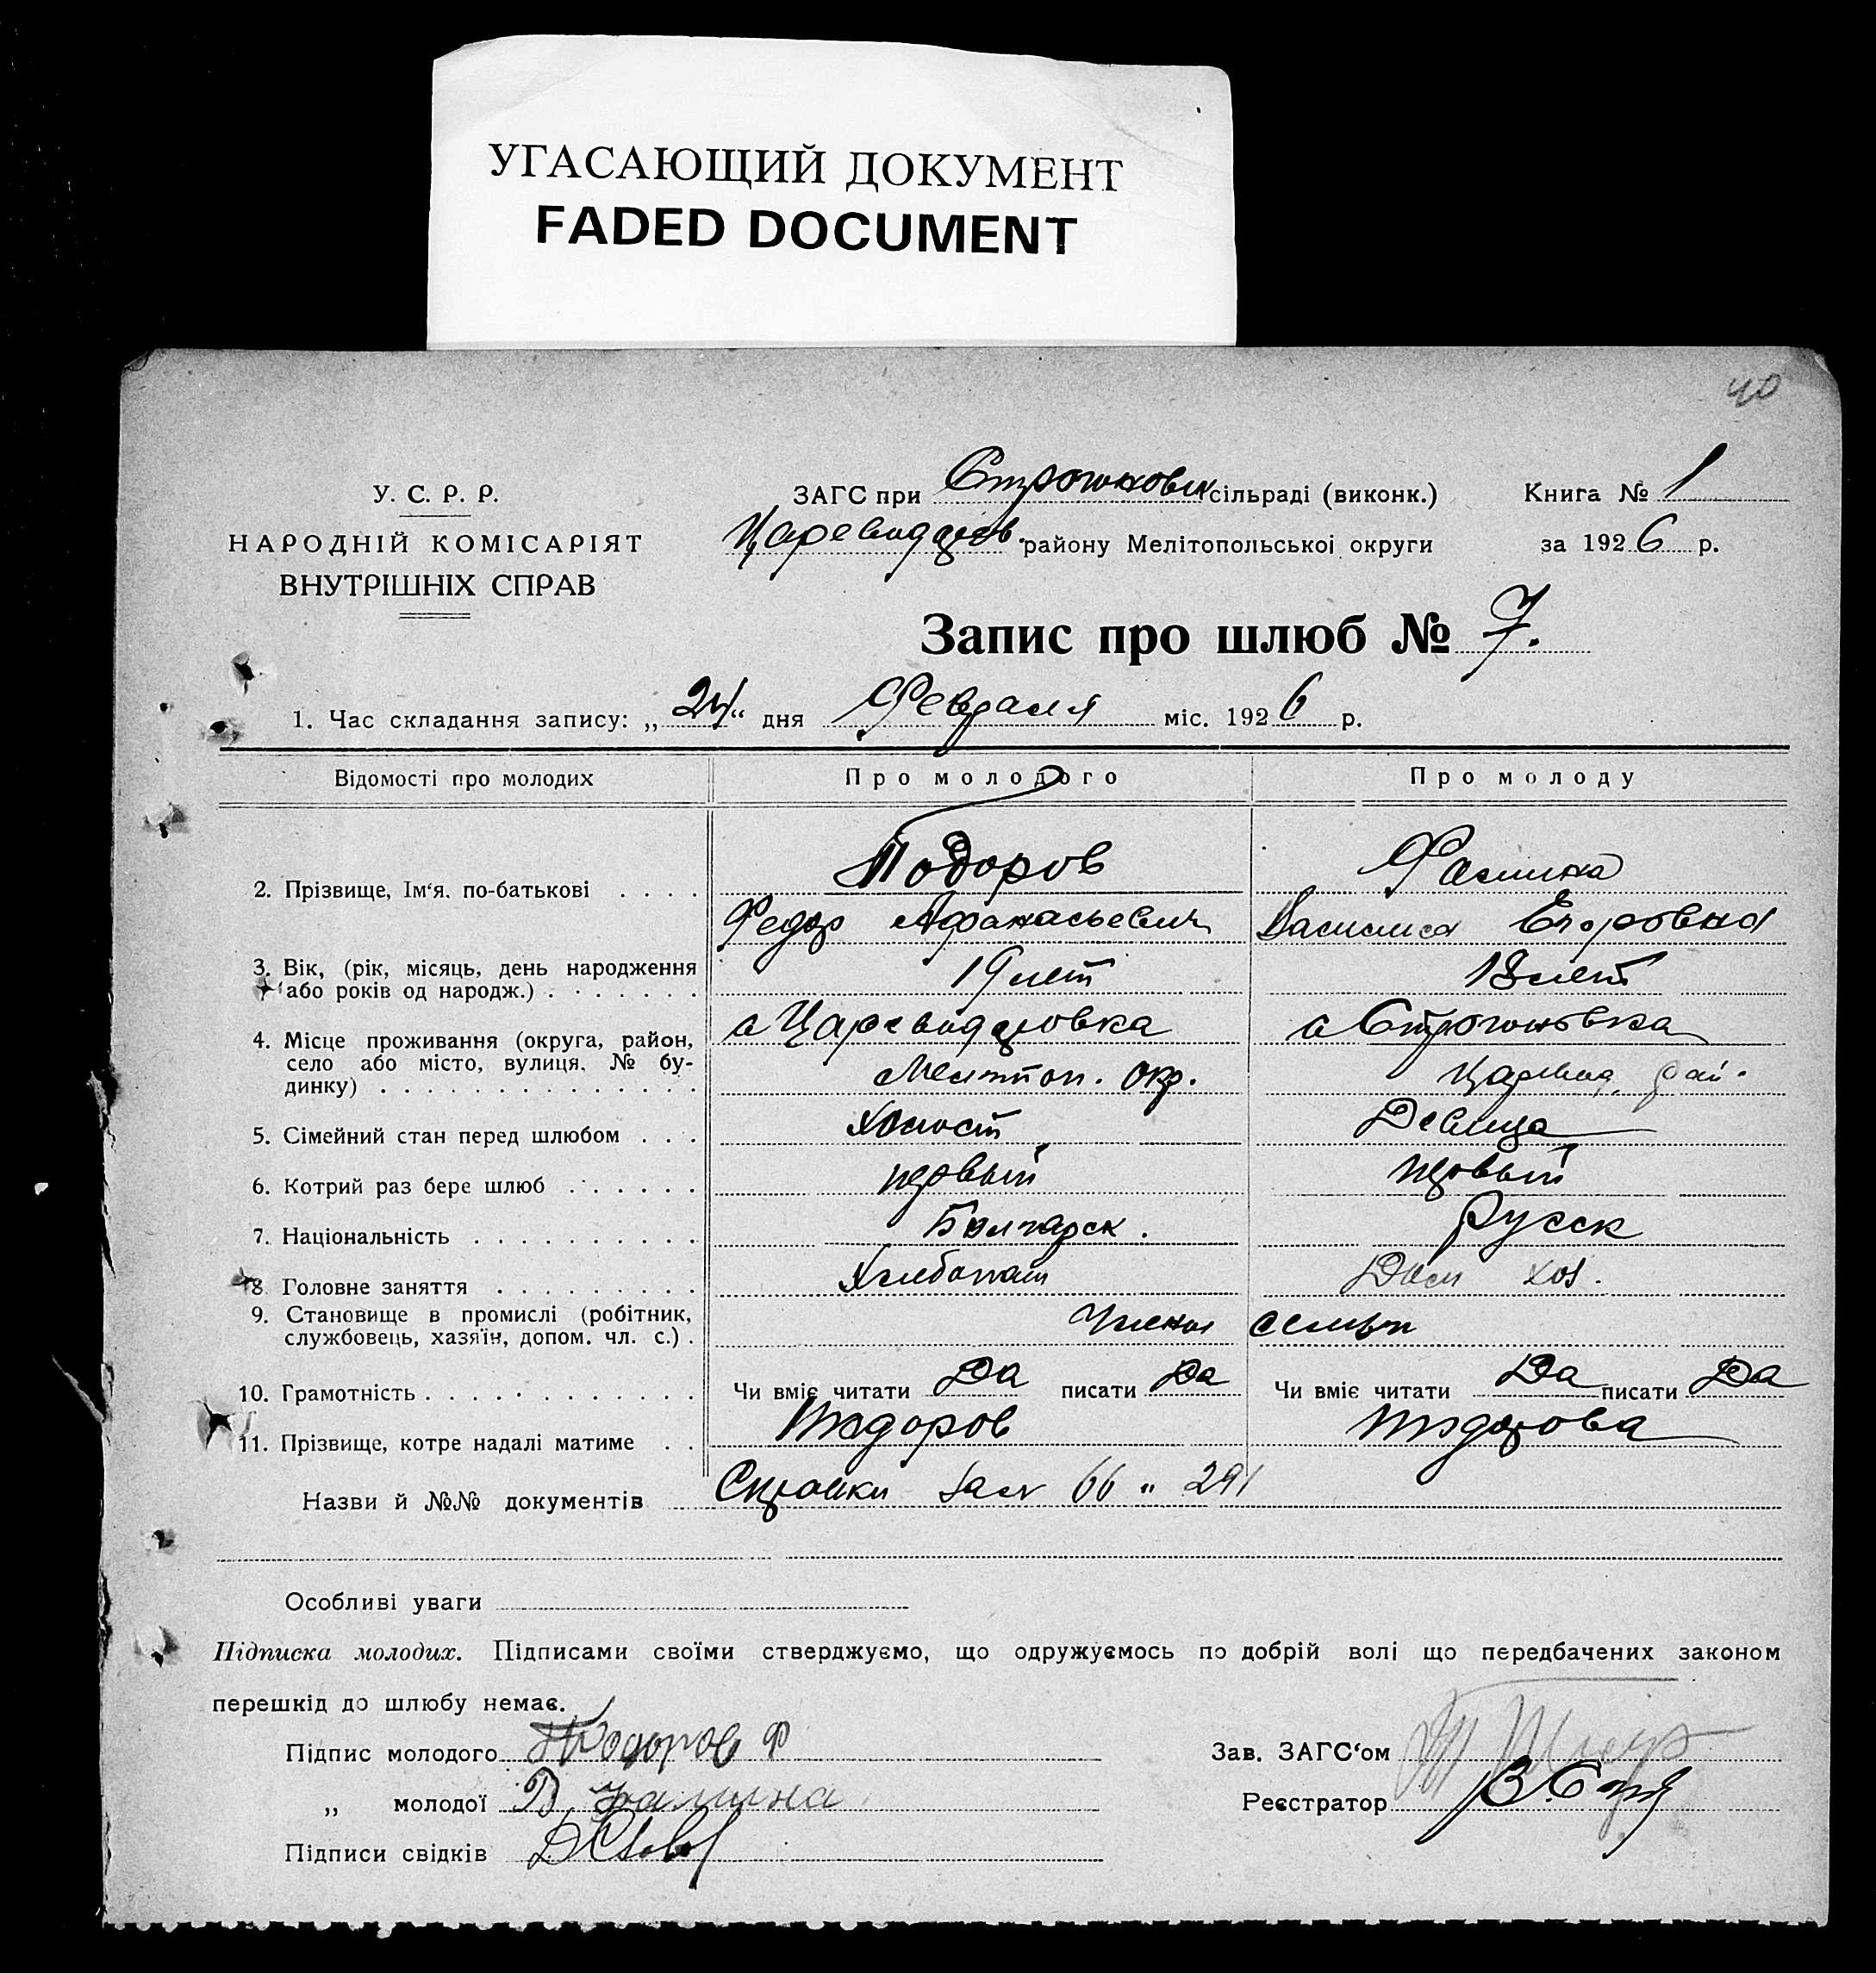 УГАСАЮЩИЙ ДОКУМЕНТ
FADED DOCUMENT
40
У. С. Р. Р.
НАРОДНІЙ КОМІСАРІЯТ
ВНУТРІШНІХ СПРАВ
ЗАГС при Строгановск сільраді (виконк.)
Книга № 1
Цареводаров. району Мелітопольської округи
за 1926 р.
Запис про шлюб № 7.
1. Час складання запису: „24“ дня Февраля міс. 1926 р.
Відомості про молодих
Про молодого
Про молоду
2. Прізвище, Ім‘я, по-батькові . . . .
Тодоров
Фамина
Федор Афанасьевич
Василиса Егоровна
3. Вік, (рік, місяць, день народження або років од народж.) . . . . . . .
19 лет
18 лет
4. Місце проживання (округа, район, село або місто, вулиця, № будинку) . . . . . . . . . . . . . .
с Мелитоп. Окр.
с Царевод. рай.
5. Сімейний стан перед шлюбом . . .
Холост
Девица
6. Котрий раз бере шлюб . . . . . .
первый
первый
7. Національність . . . . . . . . . .
Болгарск.
Русск
8. Головне заняття . . . . . . . . .
Хлебопаш
Дом хоз.
9. Становище в промислі (робітник, службовець, хазяїн, допом. чл. с.) .
Члены семьи
10. Грамотність . . . . . . . . . . . .
Чи вміє читати Да писати Да
Чи вміє читати Да писати Да
11. Прізвище, котре надалі матиме . .
Тодоров
Тодорова
Назви й №№ документів Справки 66 „ 291
Особливі уваги
Підписка молодих. Підписами своїми стверджуємо, що одружуємось по добрій волі що передбачених законом
перешкід до шлюбу немає.
Підпис молодого Тодоров Ф
Зав. ЗАГС‘ом
„ молодої В. Фамина
Реєстратор
Підписи свідків